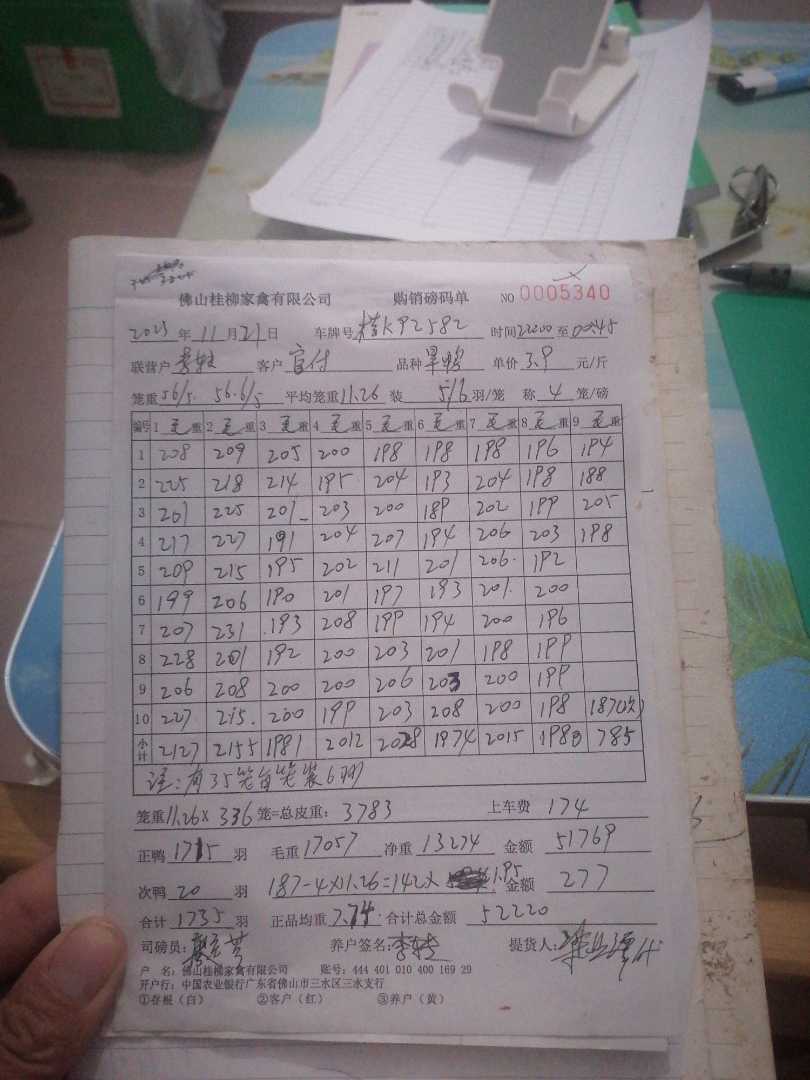 佛山桂柳家禽有限公司 购销磅码单 NO 0005340
2025 年 11 月 21 日 车牌号 K92582 时间 22:00 至 00:45
联营户 客户 官付 品种 旱鸭 单价 3.9 元/斤
笼重 56/5. 56.6/5 平均笼重 11.26 装 5/6 羽/笼 称 4 笼/磅
编号 1 毛重 2 毛重 3 毛重 4 毛重 5 毛重 6 毛重 7 毛重 8 毛重 9 毛重
1 208 209 205 200 198 198 198 196 194
2 225 218 214 195 204 193 204 198 188
3 201 225 201 203 200 189 202 199 205
4 217 227 191 204 207 194 206 203 198
5 209 215 195 202 211 201 206 192
6 199 206 190 201 197 193 201 200
7 207 231 193 208 199 194 200 196
8 228 201 192 200 203 201 198 199
9 206 208 200 200 206 203 200 199
10 227 215 200 199 203 208 200 198 187(次)
小计 2127 2155 1981 2012 2028 1974 2015 1980 785
注:有35笼每笼装6羽
笼重 11.26 × 336 笼=总皮重: 3783 上车费 174
正鸭 1715 羽 毛重 17057 净重 13274 金额 51769
次鸭 20 羽 187-4×11.26=142× 1.95 金额 277
合计 1735 羽 正品均重 7.74 合计总金额 52220
司磅员: 养户签名: 提货人:
户 名: 佛山桂柳家禽有限公司 账号: 444 401 010 400 169 29
开户行: 中国农业银行广东省佛山市三水区三水支行
①存根(白) ②客户(红) ③养户(黄)